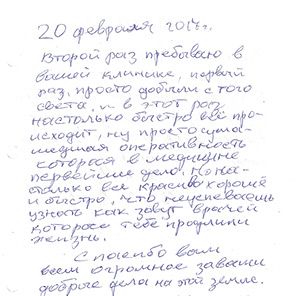 20 февраля 2017г.
Второй раз пребываю в
вашей клинике, первый
раз, просто добили с того
света, и в этот раз
настолько быстро всё про-
исходит, ну просто сума-
шедшая оперативность
которая в медицине
первейшее дело. Нона-
столько все красиво хорошо
и быстро, что неуспеваешь
узнать как зовут врачей
которое тебе продлили
жизнь.
Спасибо вам
всем огромное за ваши
доброе дела на этой земле.